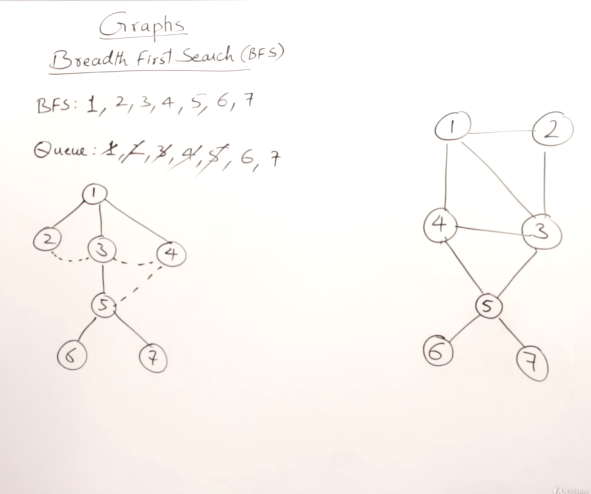 Graphs
Breadth First Search (BFS)
BFS: 1, 2, 3, 4, 5, 6, 7
Queue: 1, 2, 3, 4, 5, 6, 7
1
2
3
4
5
6
7
1
2
4
3
5
6
7